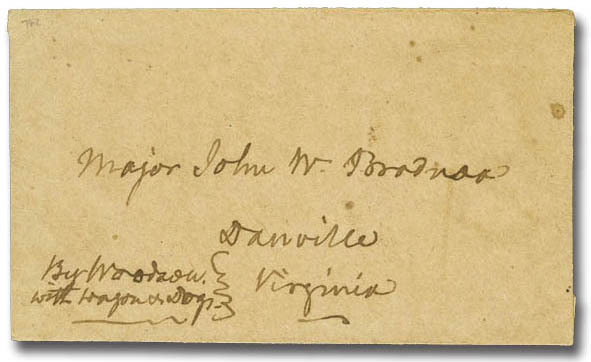 Major John W. Bradnax
Danville
Virginia
By Woodson.
with wagon & Dogs.